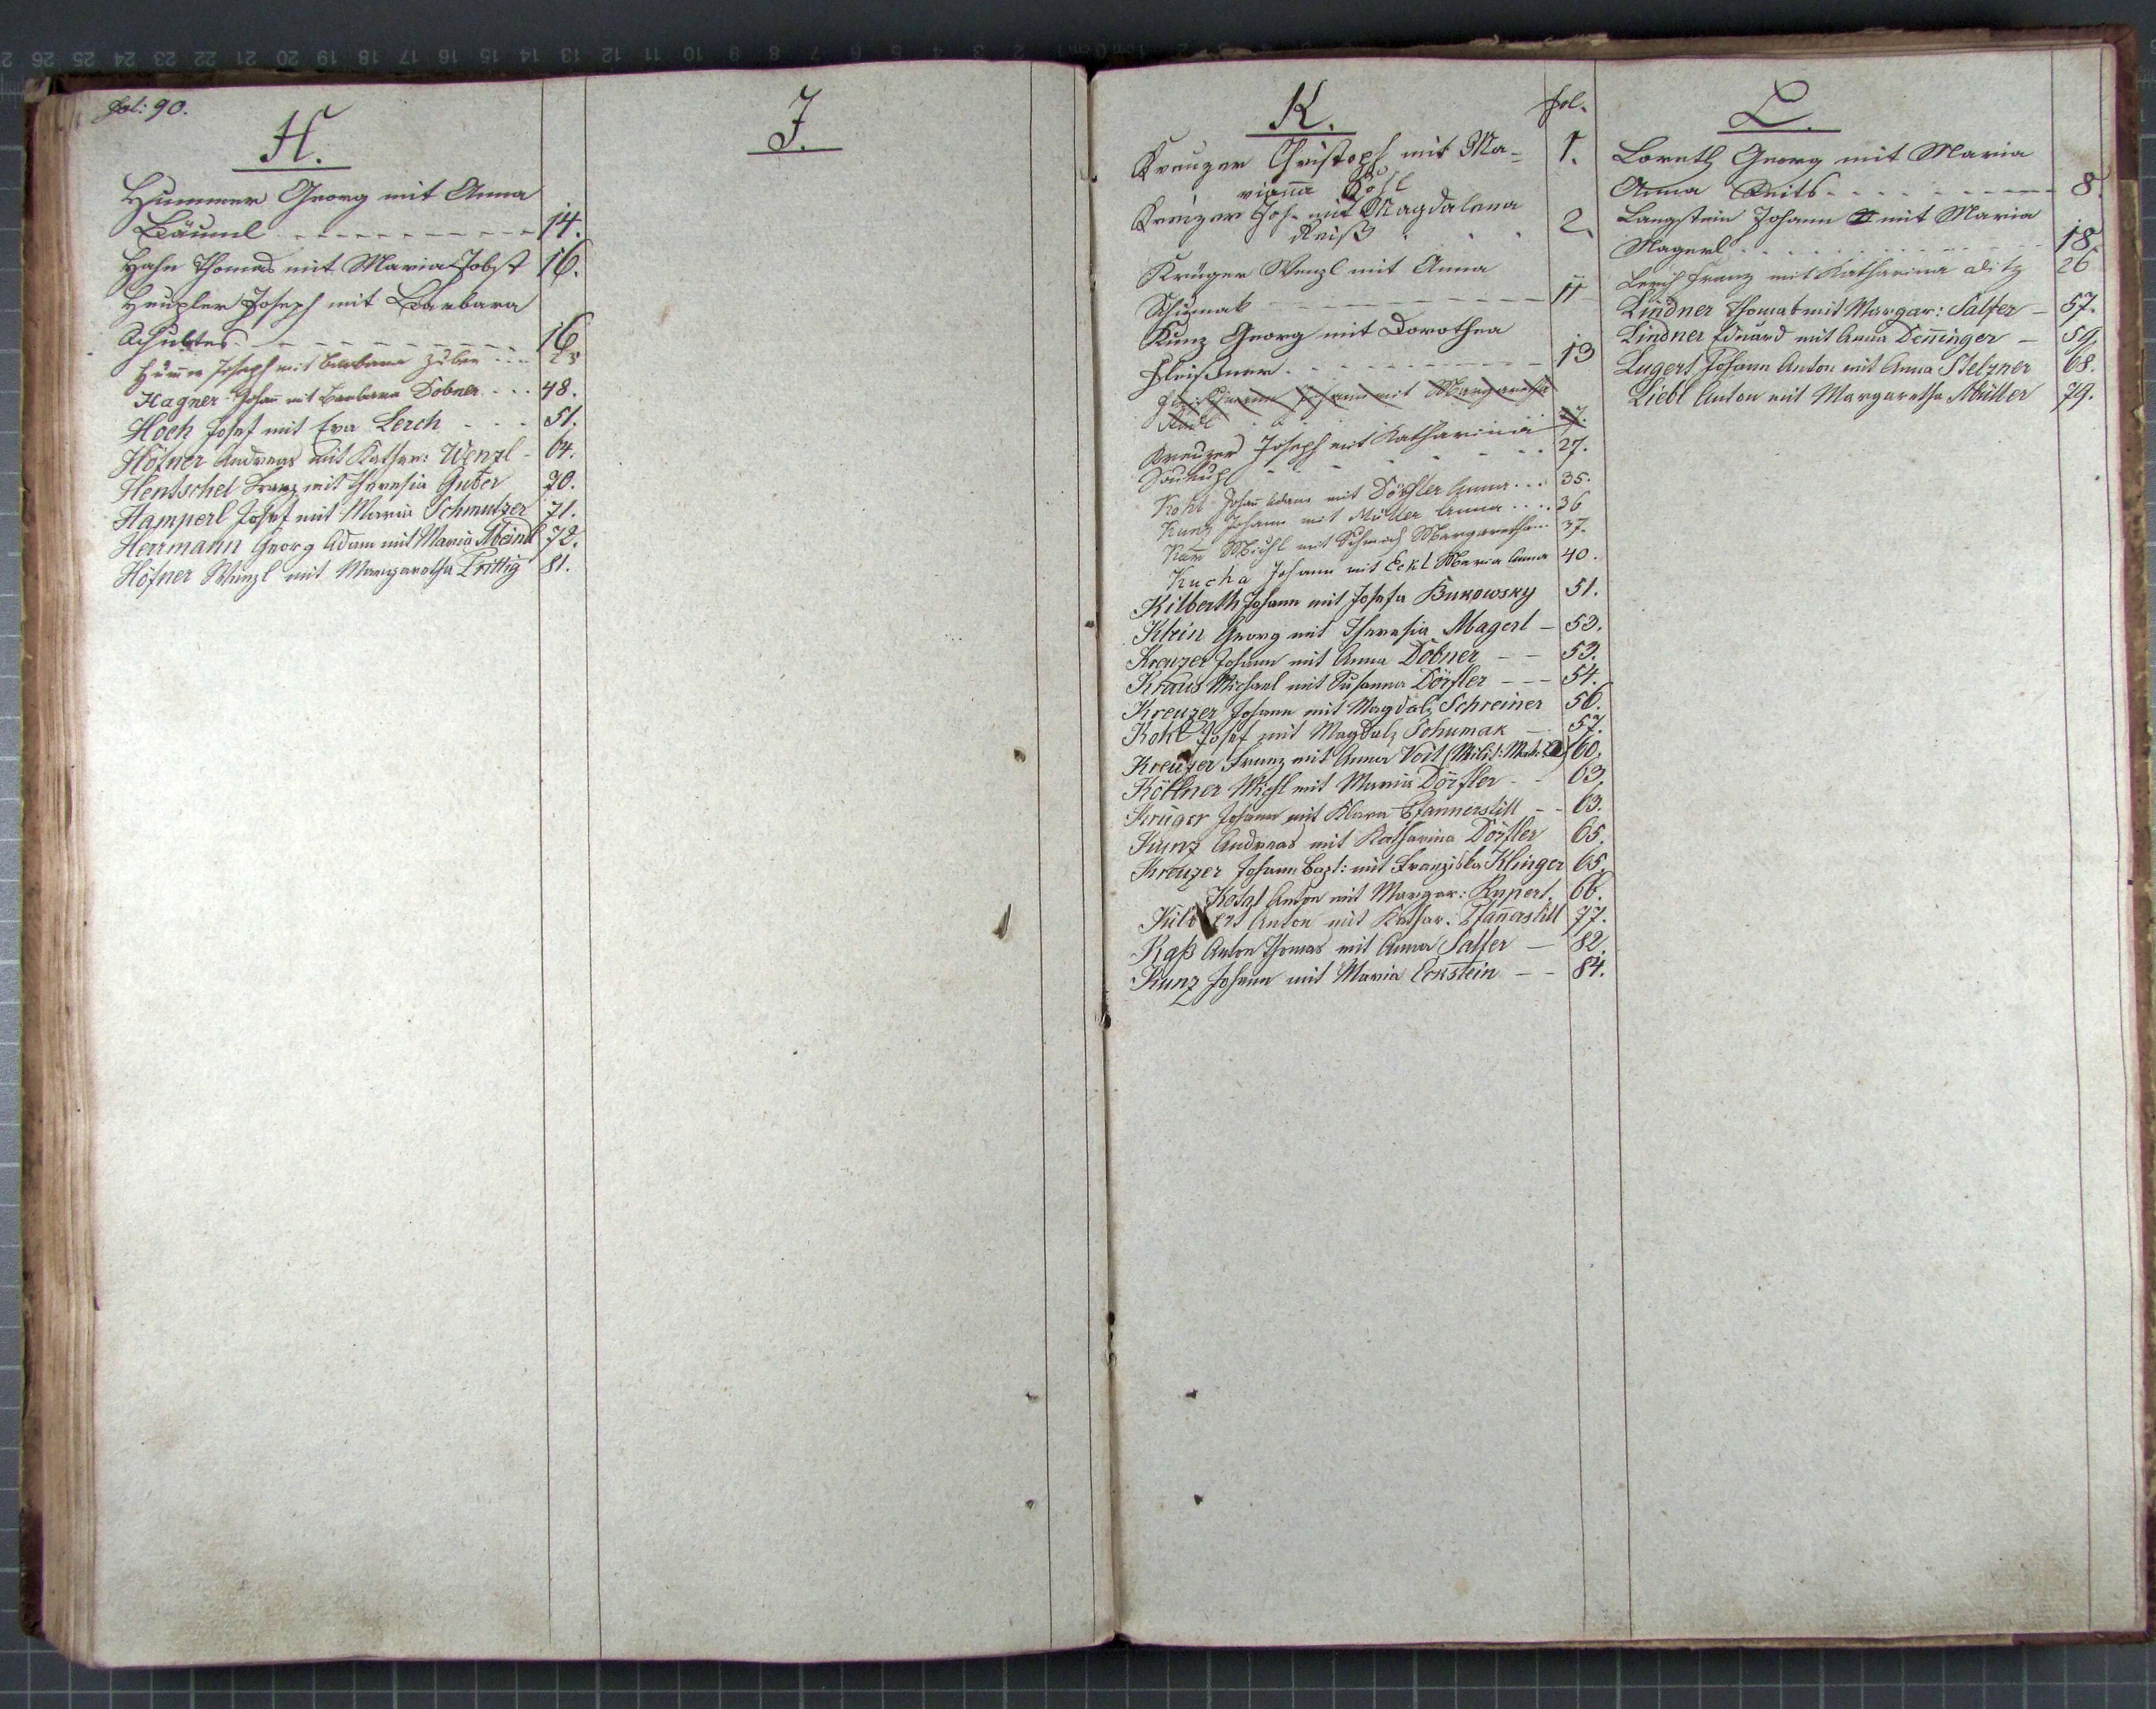 fol: 90.
H.
Hummer Georg mit Anna
Bäuml 14.
Hahn Thomas mit Maria Jobst 16.
Heupler Joseph mit Barbara
Schultes 16
Humer Joseph mit Barbara Huber
Hagner Johañ mit Barbara Dobner 48.
Hoch Josef mit Eva Lerch 51.
Höfner Andreas mit Kathar: Wenzl 64.
Hentschel Franz mit Theresia Guber 70.
Hamperl Josef mit Maria Schmutzer 71.
Herrmann Georg Adam mit Maria Meindl 72.
Höfner Wenzl mit Margaretha Prittig 81.
J.
K. fol.
Kreuzer Christoph mit Ma- 1.
rianna Pöhl
Kreuzer Joh. mit Magdalena
Reiß 2.
Krüger Wenzl mit Anna
Schumak 11
Kunz Georg mit Dorothea
Fleißner 13
Johann mit Margaretha
Kreuzer Joseph mit Katharina
27.
Kohl Johañ Adam mit Dörfler Anna 35.
Kunz Johann mit Müller Anna 36
Michl mit Schmid Margaretha 37.
Kucha Johann mit Eckl Maria Anna 40.
Kilberth Johann mit Josefa Bukowsky 51.
Klein Georg mit Theresia Magerl 53.
Kreuzer Johann mit Anna Dobner 53.
Kraus Michael mit Susanna Dörfler 54.
Kreuzer Johann mit Magdal; Schreiner 56.
Kohl Josef mit Magdal; Schumak 57.
Kreuzer Franz mit Anna Voit 60.
Köllner Michl mit Maria Dörfler 63.
Krüger Johann mit Klara Pfannerstill 63.
Kunz Andreas mit Katharina Dörfler 65.
Kreuzer Johann Bapt: mit Franziska Klinger 65.
Anton mit Margar: Ruppert. 66.
Anton mit Kathar: Pfañerstill 77.
Kaß Anton Thomas mit Anna Salfer 82.
Kunz Johann mit Maria Eckstein 84.
L.
Loreth Georg mit Maria
Anna 8.
Langstein Johann mit Maria
Magerl 18.
Lerch Franz mit Katharina Ditz 26
Lindner Thomas mit Margar: Salfer 57.
Lindner Eduard mit Anna Deñinger 59.
Lugert Johann Anton mit Anna Stelzner 68.
Liebl Anton mit Margaretha Müller 79.